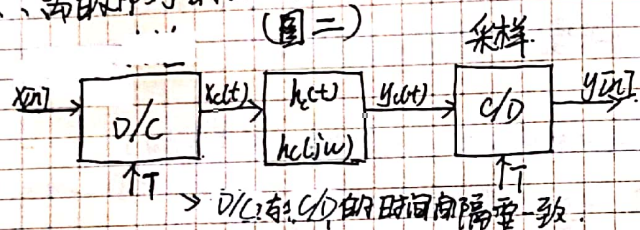 (图二)
采样.
x[n]
D/C
xc(t)
hc(t)
hc(jw)
yc(t)
C/D
y[n].
↑T
↑T
D/C与C/D的时间间隔要一致.